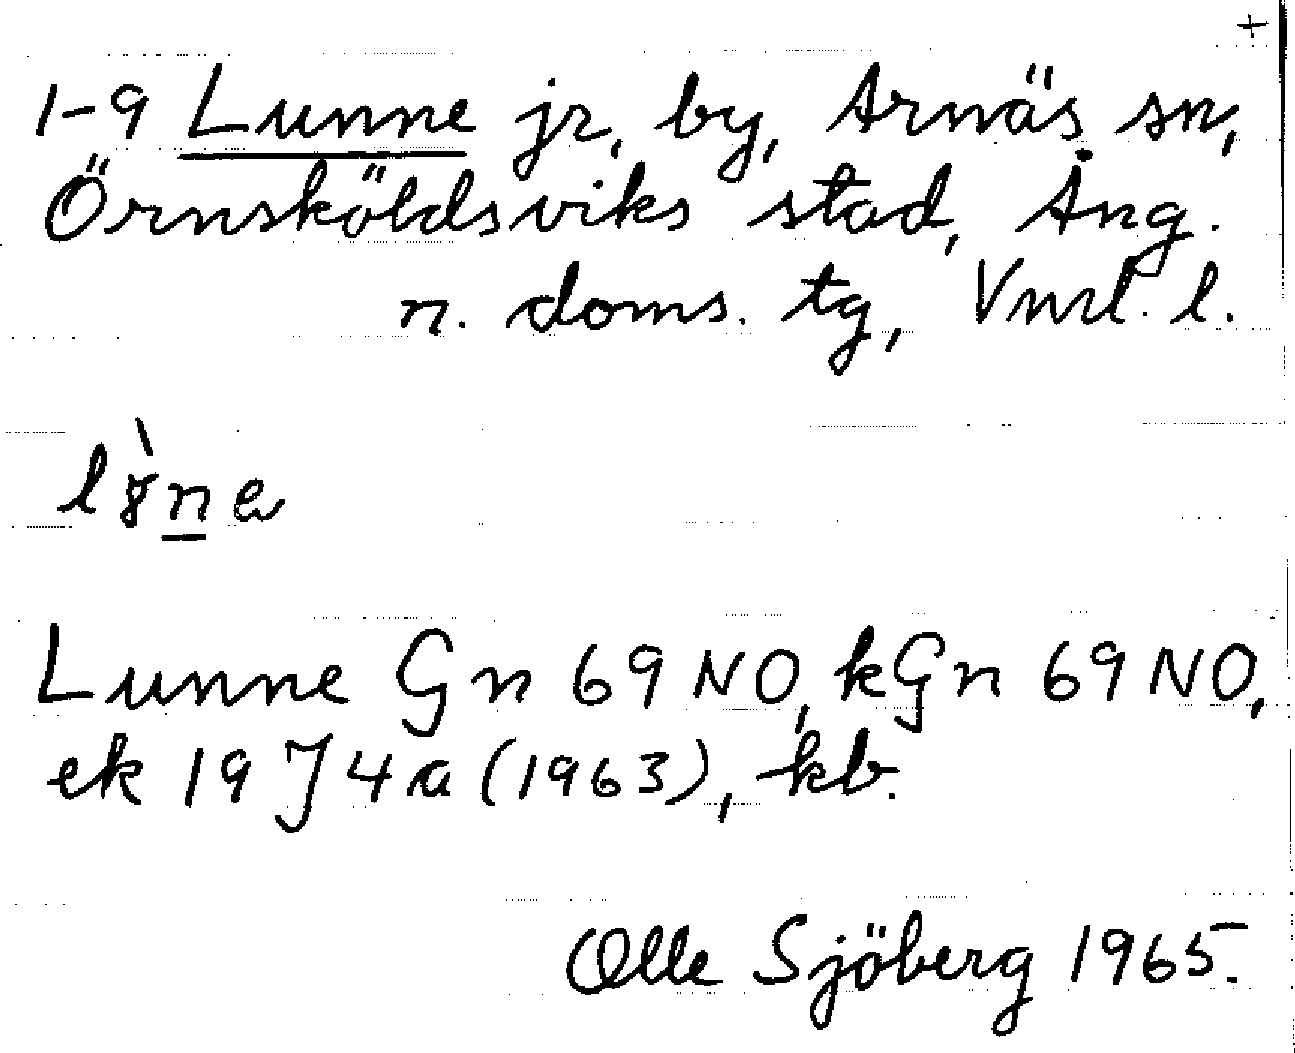 +
1-9 Lunne jr, by, Arnäs sn,
Örnsköldsviks stad, Ång.
n. doms. tg, Vnrl. l.
Lunne Gn 69 NO, kGn 69 NO,
ek 19 J 4 a (1963), kb.
Olle Sjöberg 1965.